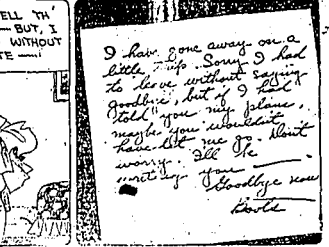 ELL TH'
— BUT, I
WITHOUT
TE ——!
I have gone away on a
little trip. Sorry I had
to leave without saying
goodbye, but if I had
told you my plans,
maybe you wouldn't
have let me go. Don't
worry. I'll be
you
Goodbye now